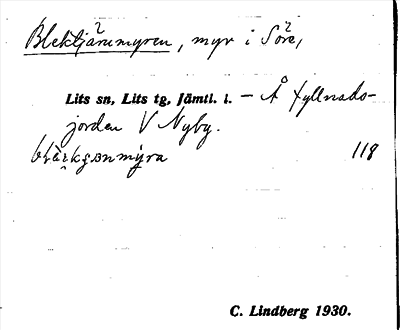 Blektjärnmyren, myr i Söre,
Lits sn, Lits tg, Jämtl. l. – Å fyllnads-
jorden V Nyby.
118
C. Lindberg 1930.